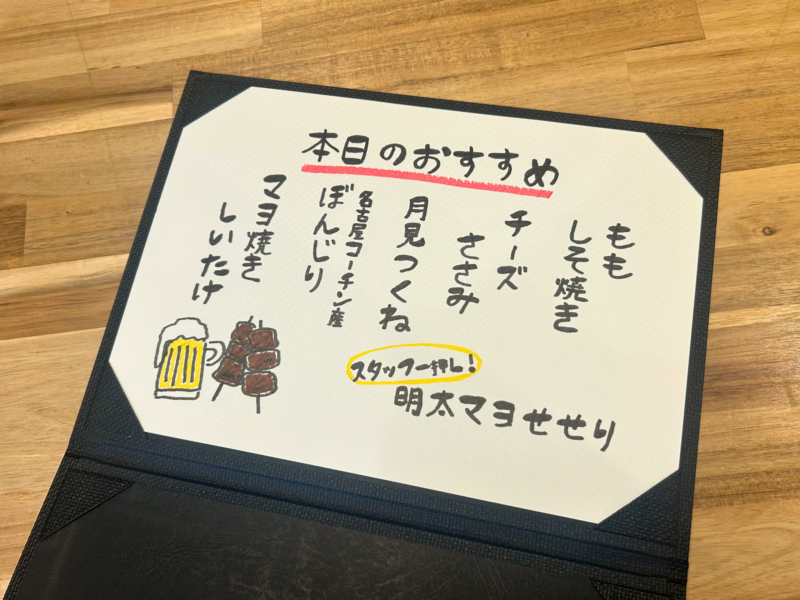 本日のおすすめ
もも
しそ焼き
チーズ
ささみ
月見つくね
名古屋コーチン産
ぼんじり
マヨ焼き
しいたけ
スタッフ一押し!
明太マヨせせり